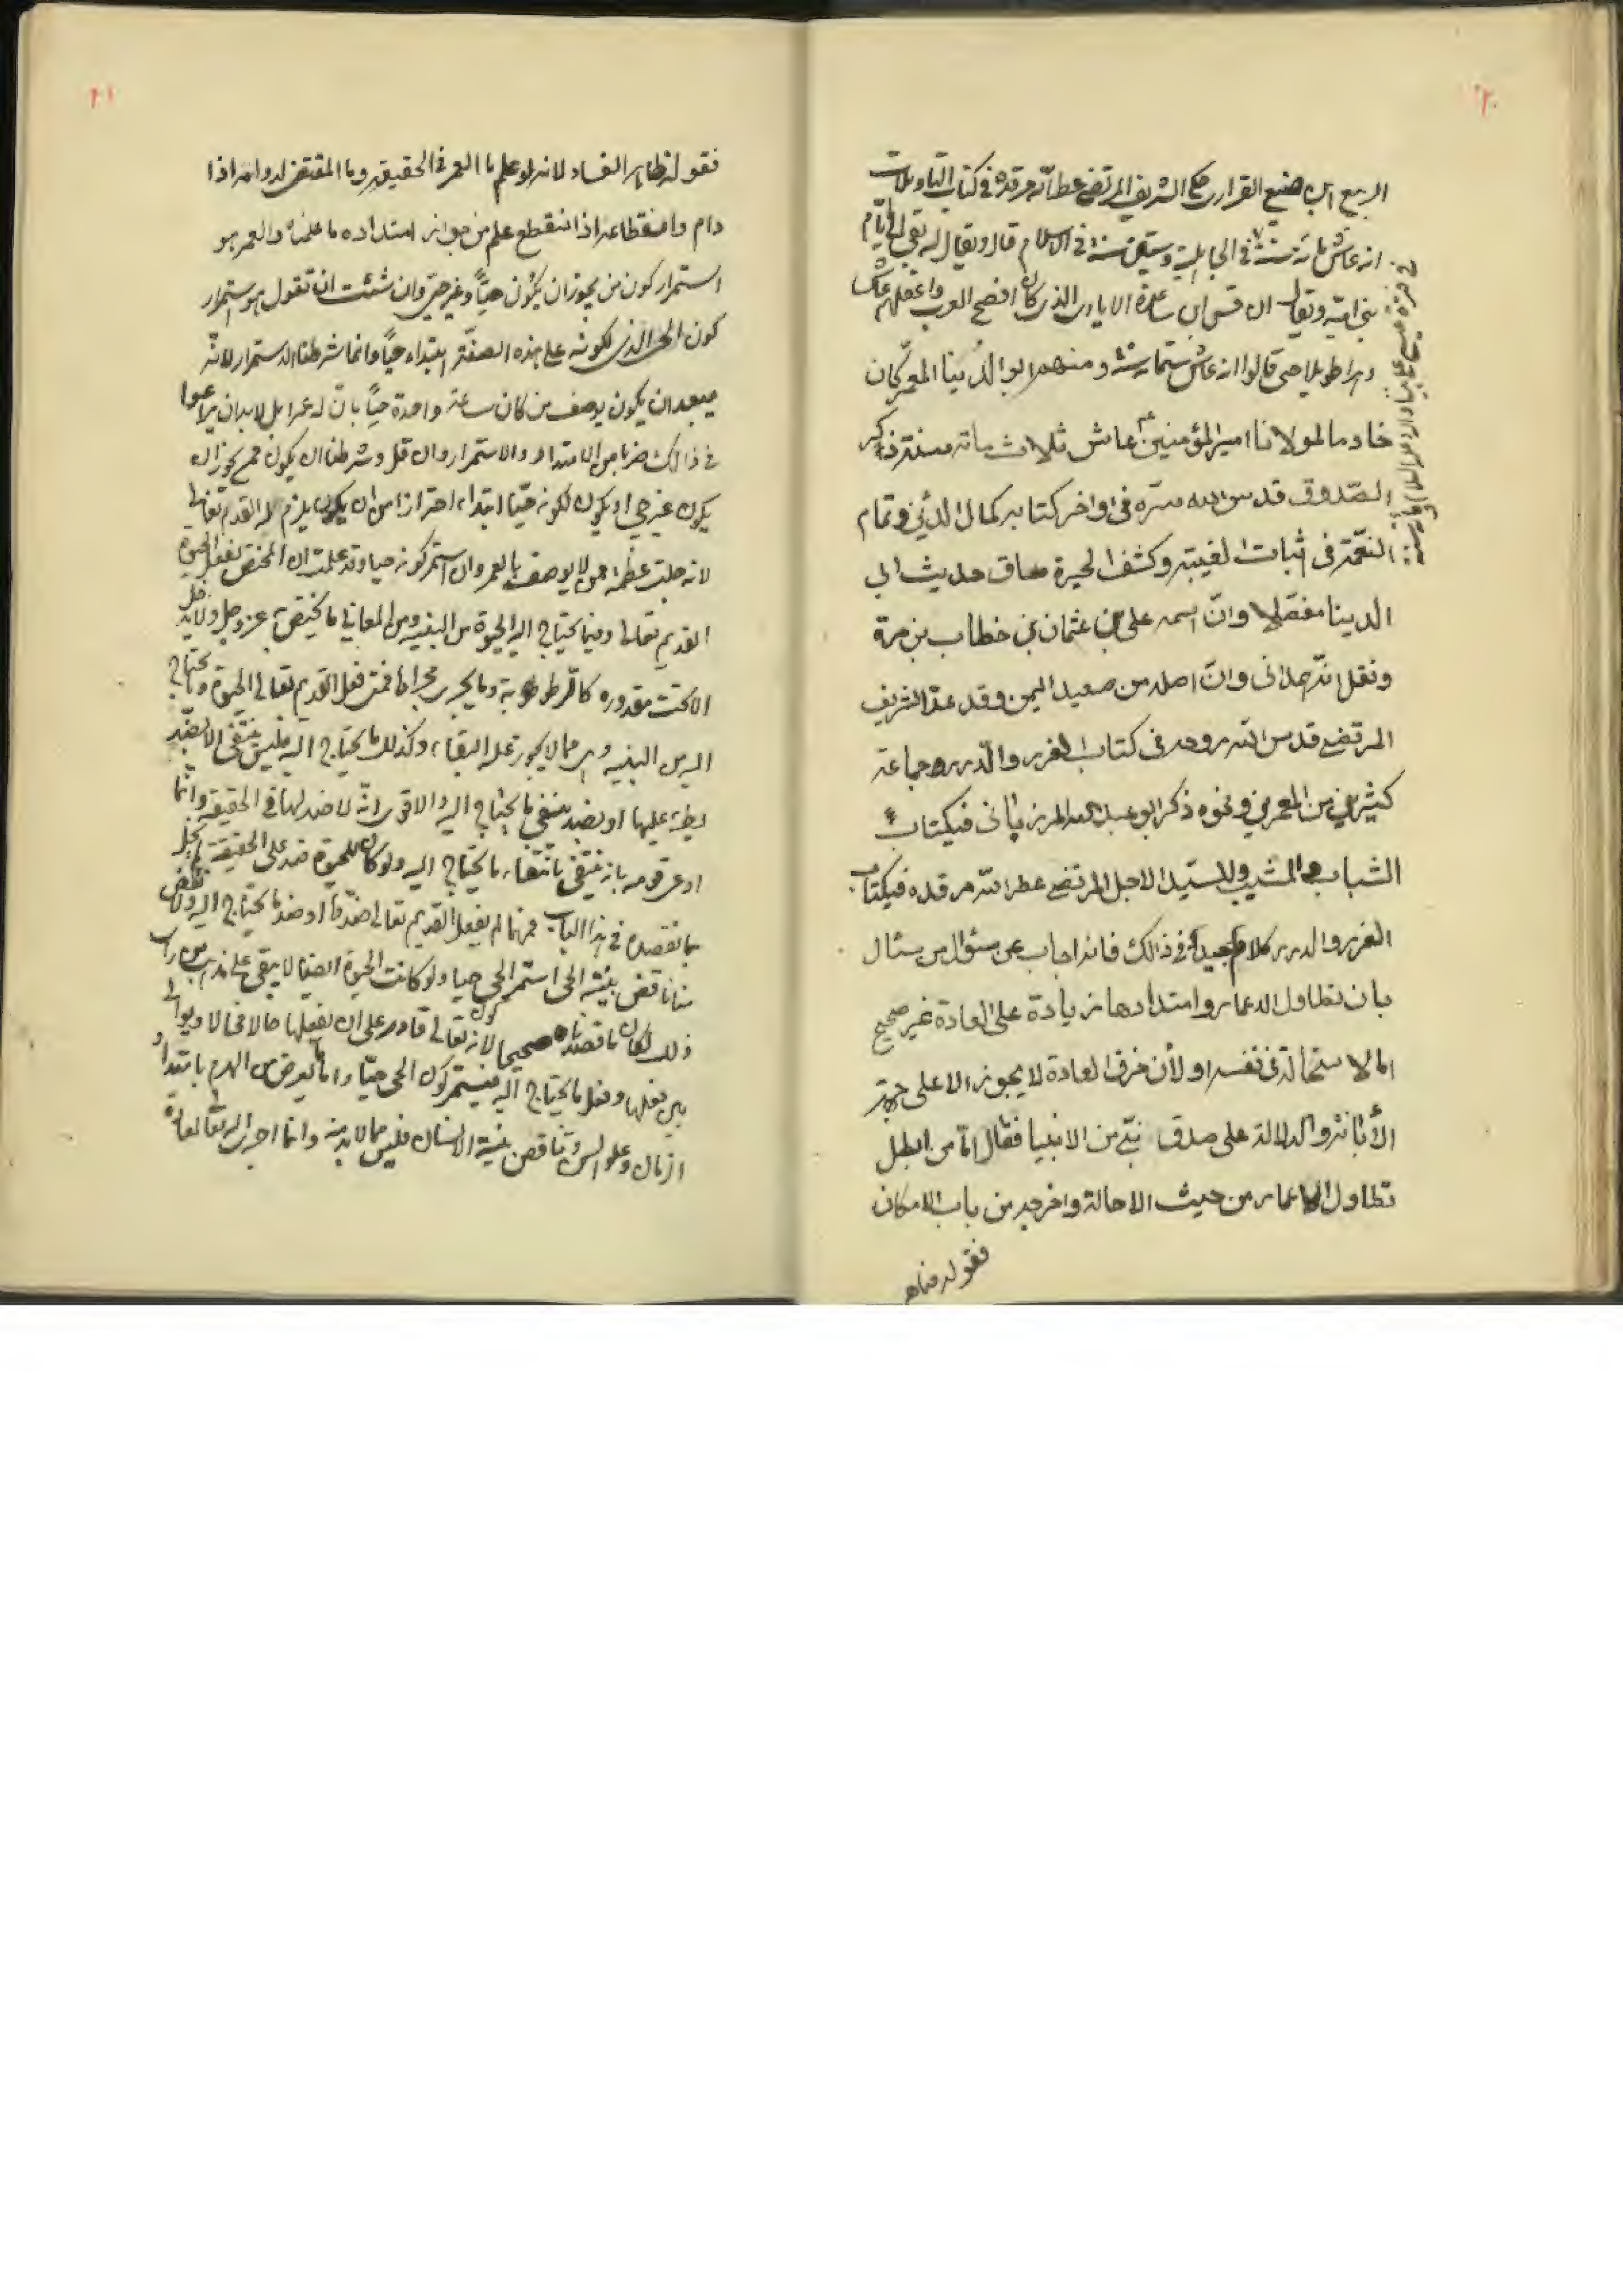 ٢٠
الربيع ابن ضبيع الفزاري حكى الشريف المرتضى عطر الله مرقده في كتاب التاويلات
انه عاش مائة سنة في الجاهلية وستين سنة في الاسلام قال ويقال انه بقى الى ايام
بني امية ويقال ان قس ابن ساعدة الايادي الذي كان افصح العرب واعقلهم عاش
دهرا طويلا حتى قالوا انه عاش ستمائة سنة ومنهم ابو الدنيا المعمر كان
خادما لمولانا امير المؤمنين ع عاش ثلاث مائة سنة ذكر
الصدوق قدس الله سره في اواخر كتابه كمال الدين وتمام
النعمة في اثبات الغيبة وكشف الحيرة وساق حديث ابي
الدينا مفصلا وان اسمه علي بن عثمان بن خطاب بن مرة
ونقل انه همداني وان اصله من صعيد اليمن وقد عد الشريف
المرتضى قدس الله روحه في كتاب الغرر والدرر جماعة
كثيرين من المعمرين ونحوه ذكر ابو عبد الله المرزباني في كتاب
الشباب والمشيب وللسيد الاجل المرتضى عطر الله مرقده في كتاب
الغرر والدرر كلام جيد في ذالك فانه اجاب عن سؤال من سئال
بان تطاول الاعمار وامتدادها زيادة على العادة غير صحيح
اما لاستحالته في نفسه او لأن خرق العادة لا يجوز الا على جهة
الأبانة والدلالة على صدق نبي من الانبيا فقال اما من ابطل
تطاول الاعمار من حيث الاحالة واخرجه من باب الامكان
فقوله ظاهر
٢١
فقوله ظاهر الفساد لانه لو علم ما العمر في الحقيقة وما المقتضى لدوامه اذا
دام وانقطاعه اذا انقطع علم من جواز امتداده ما علمناه والعمر هو
استمرار كون من يجوز ان يكون حيا وغير حي وان شئت ان تقول هو استمرار
كون الحي الذي لكونه على هذه الصفة ابتداء حيا وانما شرطنا الاستمرار لانه
يبعد ان يكون يوصف من كان ساعة واحدة حيا بان له عمرا بل لابد ان يراعوا
في ذالك ضربا من الامتداد والاستمرار وان قل وشرطنا ان يكون ممن يجوز ان
يكون غير حي او يكون لكونه حيا ابتداء احترازا من ان يكون يلزم القديم تعالى
لانه جلت عظمته ممن لا يوصف بالعمر وان استمر كونه حيا وقد علمت ان المختص بفعل الحيوة
القديم تعالى وفيما يحتاج اليه الحيوة من البنيه ومن المعاني ما يختص به عز وجل ولا يدخل
الا تحت مقدوره كالرطوبة وما يجرى مجراها فمتى فعل القديم تعالى الحيوة وما يحتاج
اليه من البنيه وهي مما لا يجوز عليه البقاء وكذلك ما يحتاج اليه فليس ينتفى الا بضد
يطرء عليها او بضد ينفى ما يحتاج اليه والاقوى انه لا ضد لها في الحقيقة وانما
ادعى قوم بانه ينتفى بانتفاء ما يحتاج اليه ولو كان للحيوة ضد على الحقيقة لم يخل
بما نقصده في هذا الباب فمهما لم يفعل القديم تعالى ضدها او ضد ما يحتاج اليه ولا نقض
منا ناقض بنية الحي استمر الحي حيا ولو كانت الحيوة ايضا لا يبقى على مذهب من راى
ذلك لكان ما قصدناه صحيحا لانه تعالى قادر على ان يفعلها حالا فحالا ويوالي
بين فعلها وفعل ما يحتاج اليه فيستمر كون الحي حيا واما ما يعرض من الهرم بامتداد
الزمان وعلو السن وتناقص بنية الانسان فليس مما لابد منه وانما اجرى الله تعالى العادة